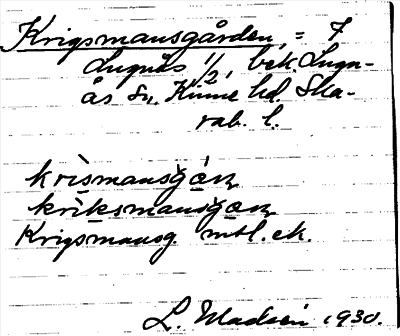 Krigsmansgården = 7
Lugnås 1/2, bek. Lugn-
ås sn, Kinne hd. Ska-
rab. l.
krismansgán
kriksmansgan
Krigsmansg. mtl. ek.
L. Madsén 1930.